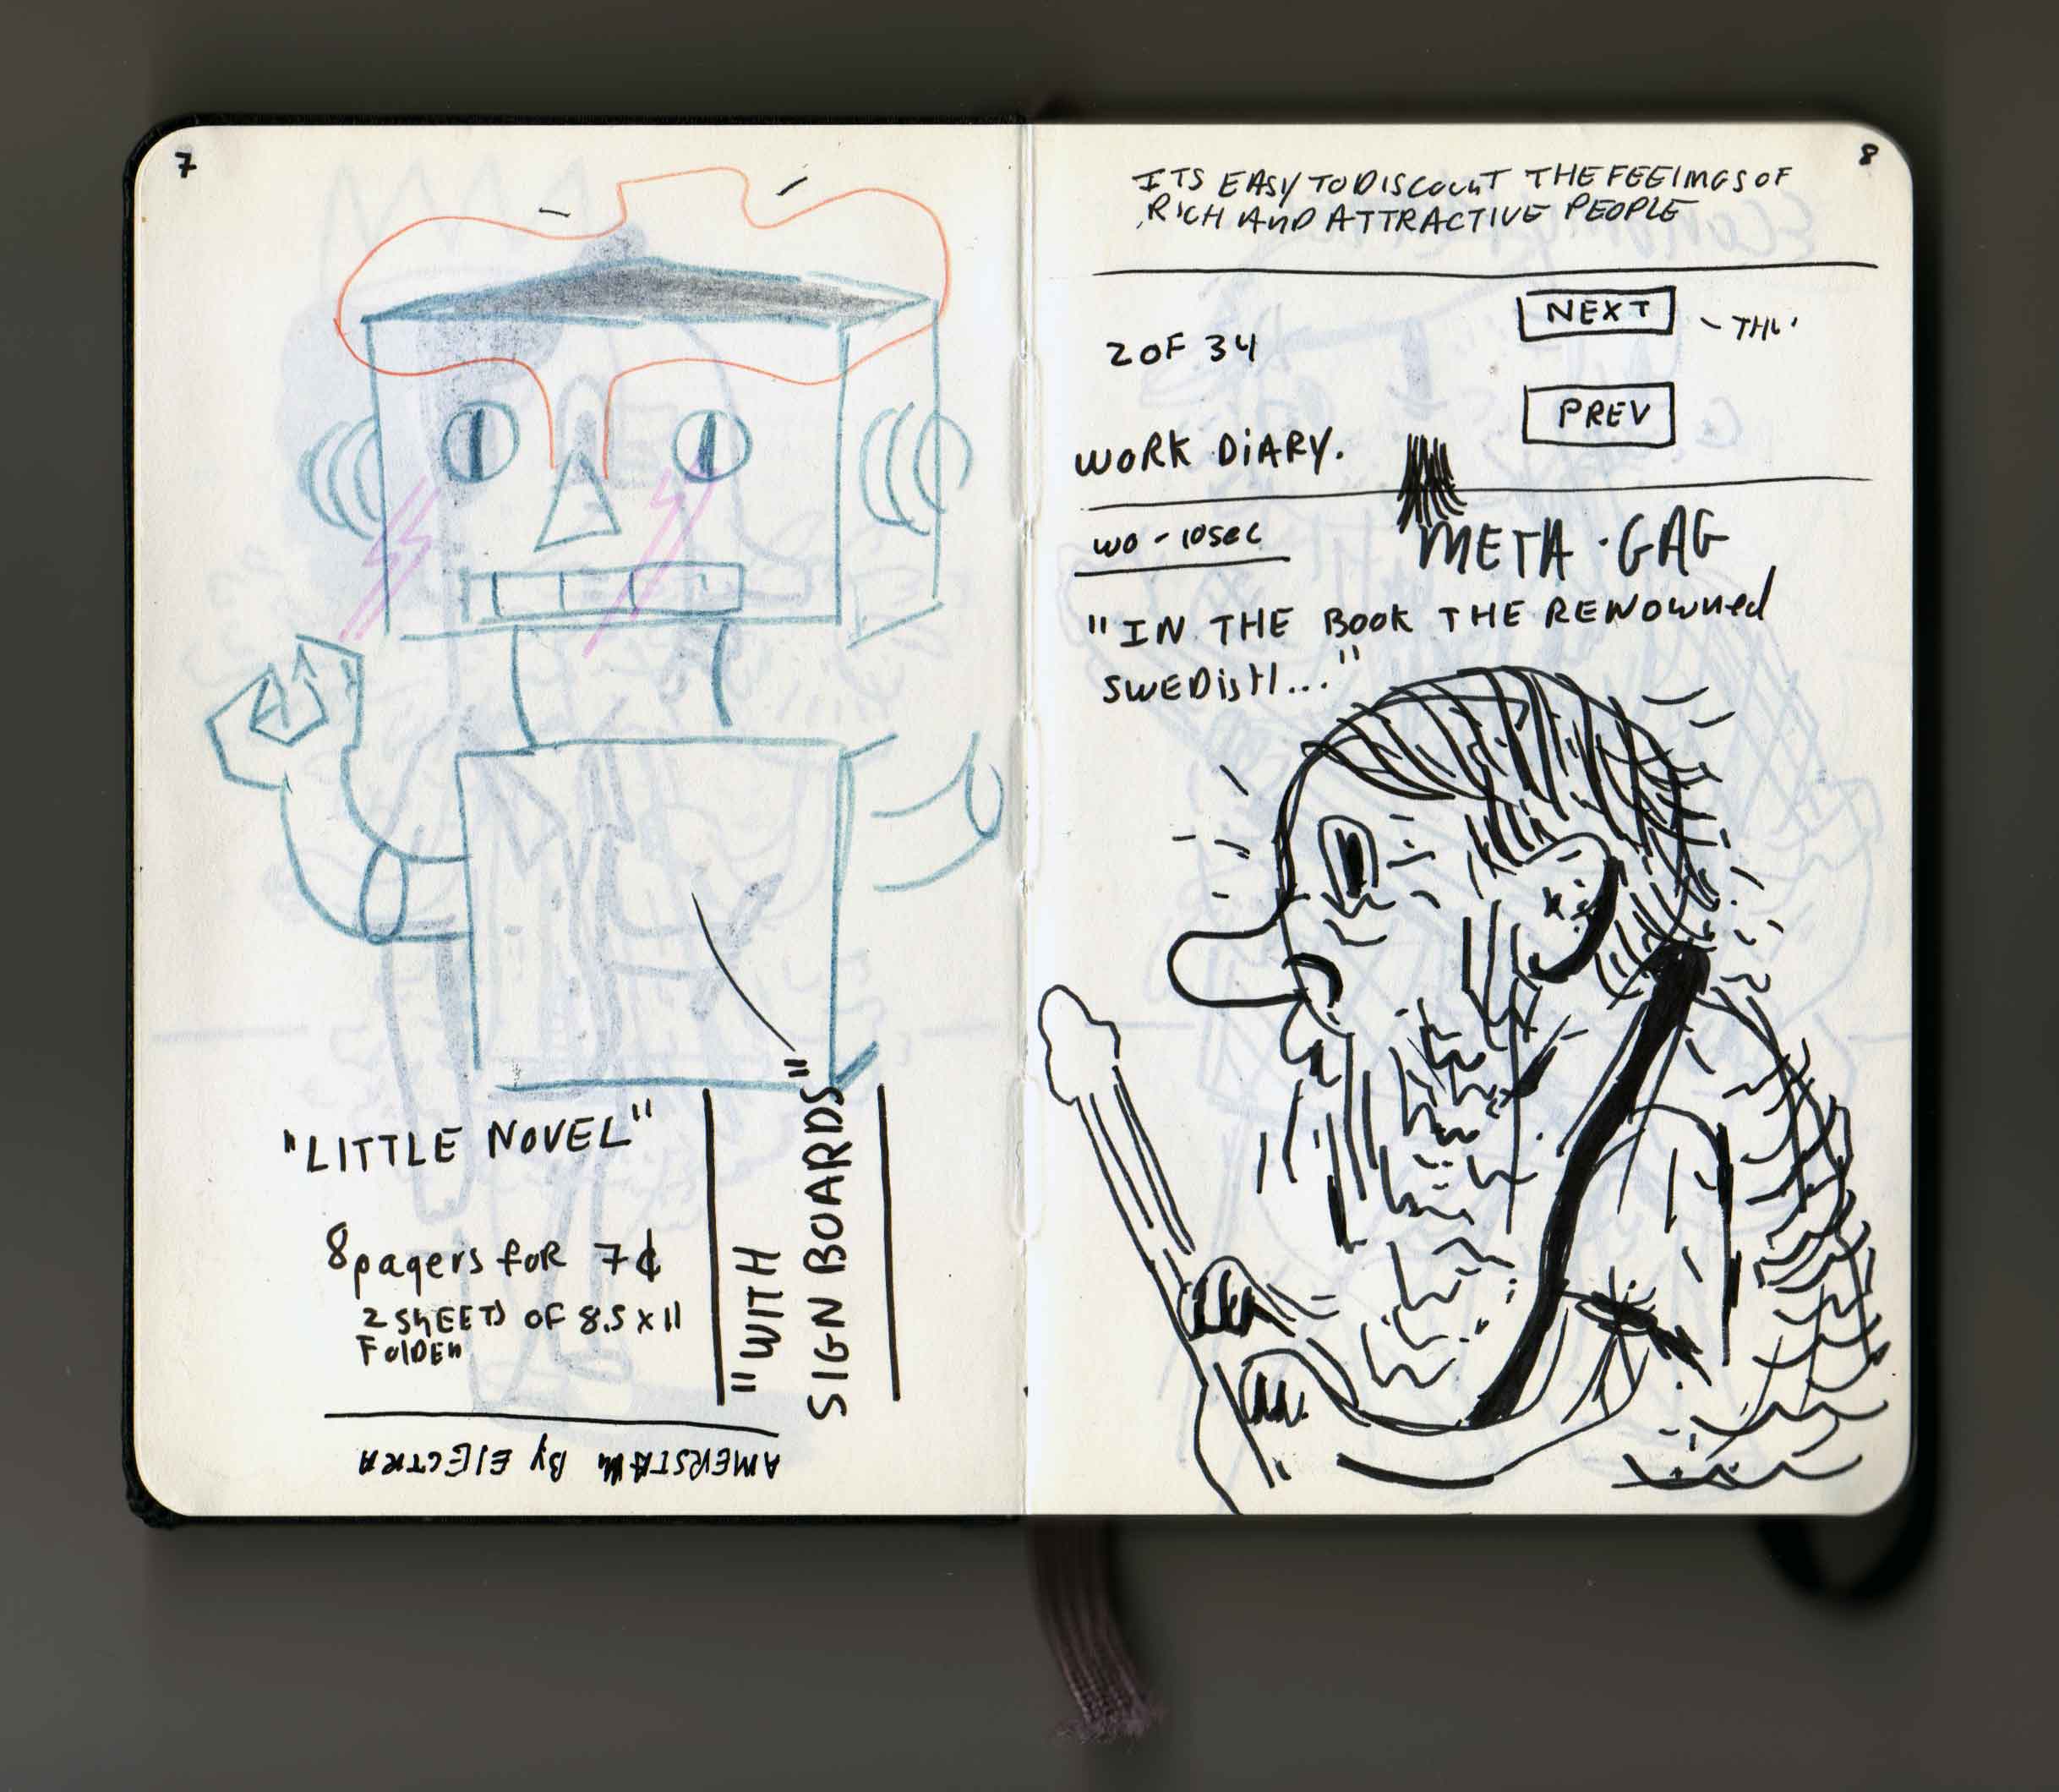 7
"LITTLE NOVEL"
8 pagers for 7¢
2 SHEETS OF 8.5 X 11
FOLDEN
"WITH
SIGN BOARDS"
BY ELECTRA
8
ITS EASY TO DISCOUNT THE FEELINGS OF
RICH AND ATTRACTIVE PEOPLE
NEXT
2 OF 34
PREV
WORK DIARY.
WO - 10SEC
META · GAG
"IN THE BOOK THE RENOWNED
SWEDISH..."